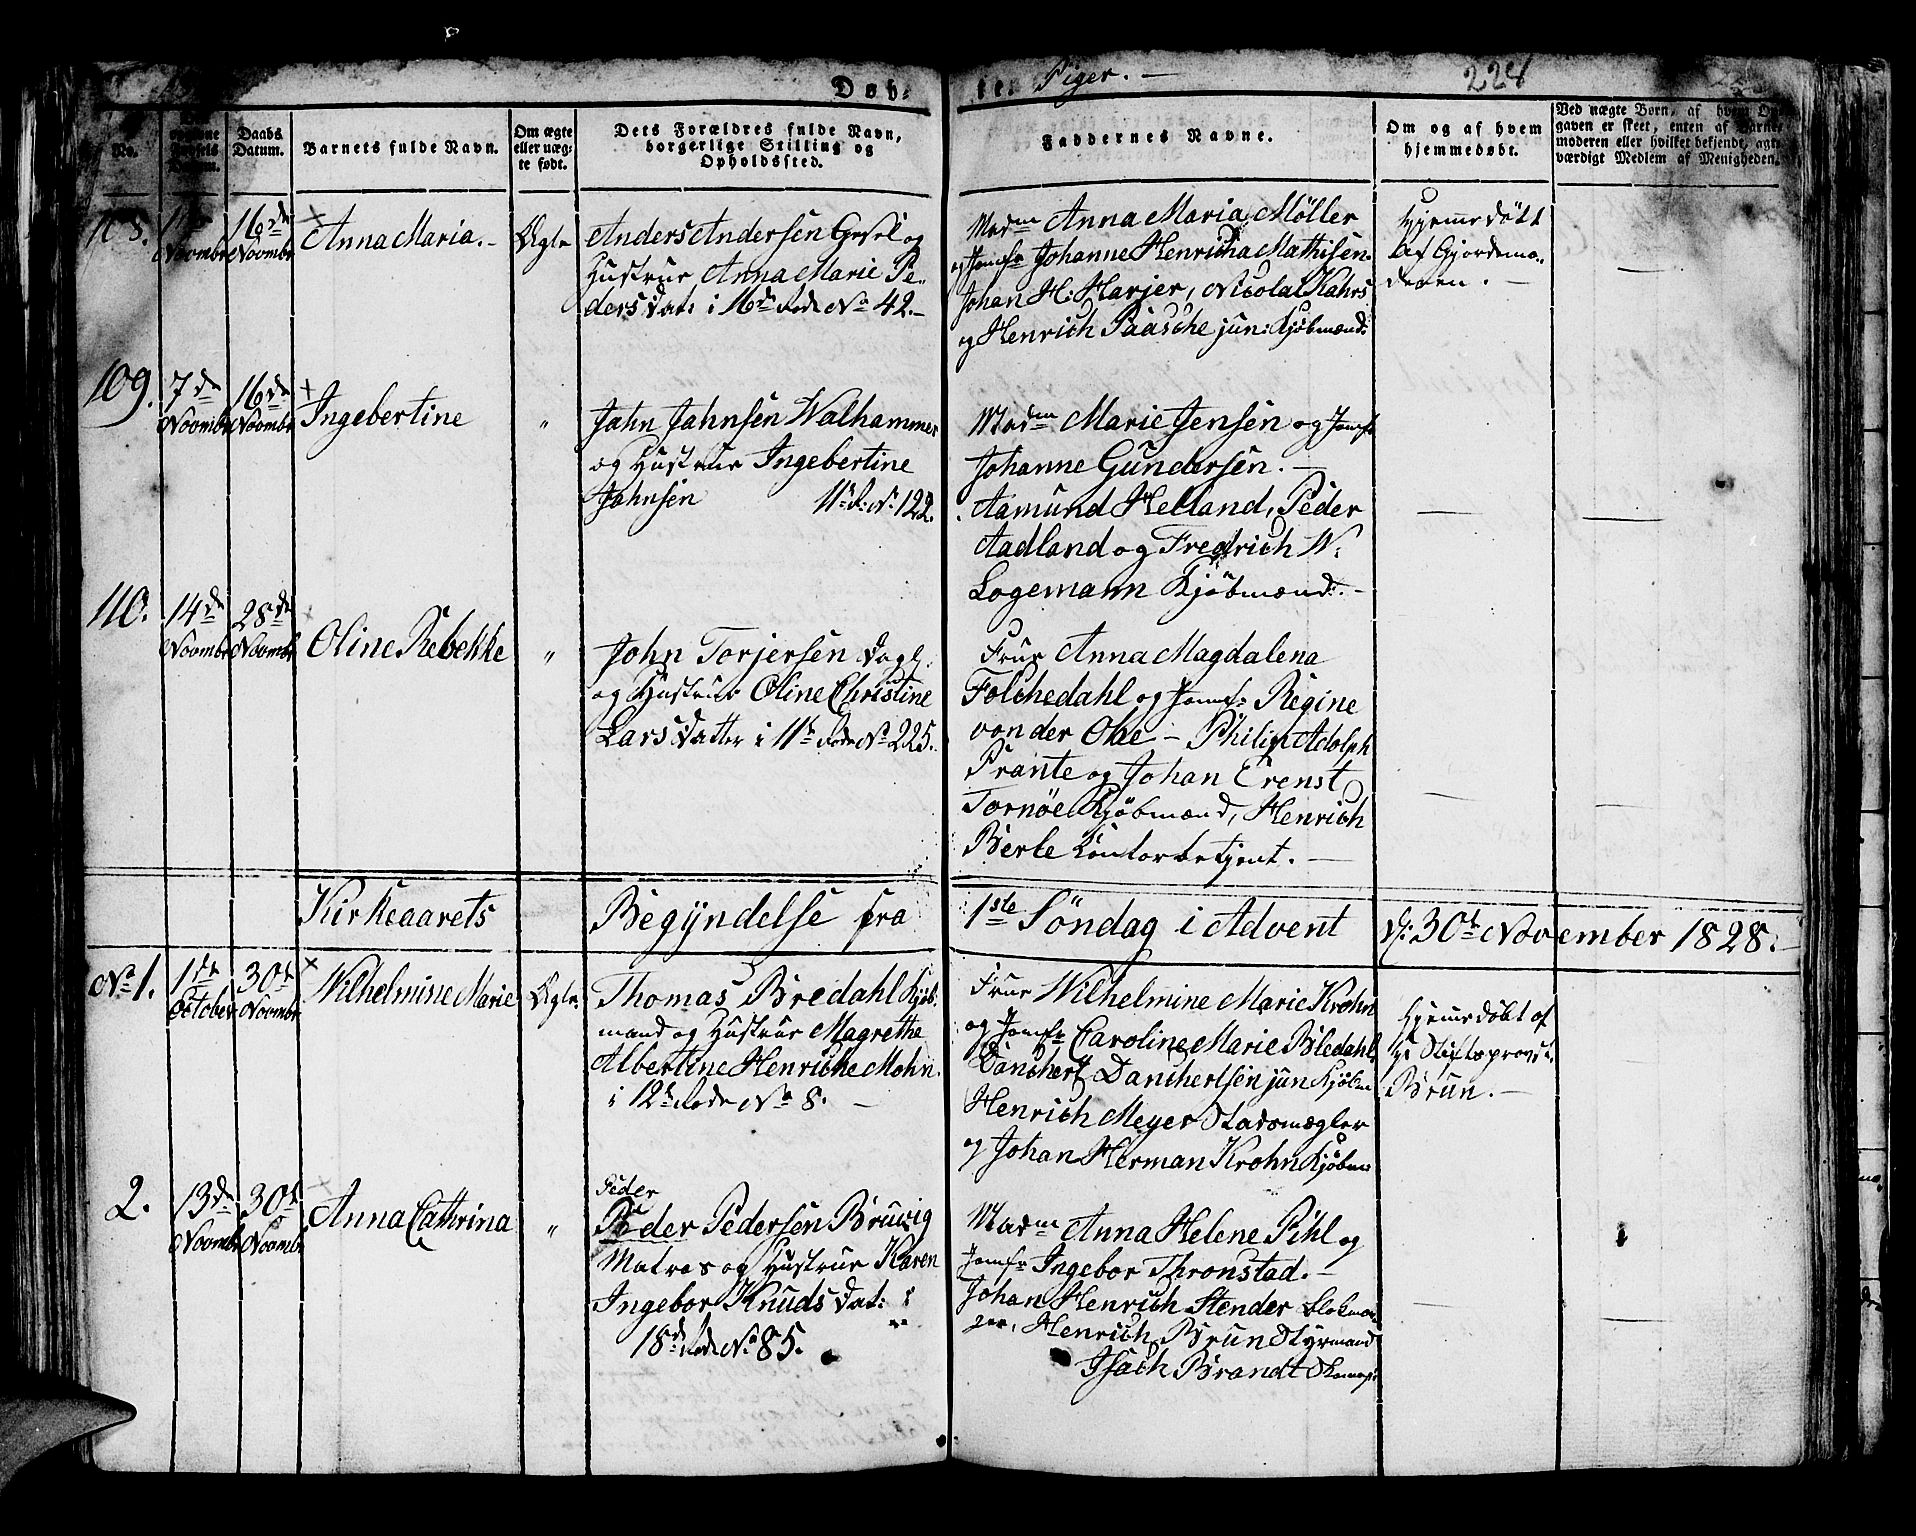 Døb- te. Piger. —
224
No. Daabs Datum. Barnets fulde Navn. Om ægte eller uæg- te født. Dets Forældres fulde Navn, borgerlige Stilling og Opholdssted. Faddernes Navne. Om og af hvem hjemmedøbt. Ved uægte Børn, af hvem Op- gaven er skeet, enten af Barne- moderen eller hvilket bekjendt, agt- værdigt Medlem af Menigheden.
108. Novmbr 16de Novmbr
Anna Maria. —
Ægte
Anders Andersen Gesel og
Hustrue Anna Marie Pe-
dersdat: i 16de Rode No 42. —
Madm Anna Maria Møller
og Jomfr Johanne Henricha Mathisen.
Johan H: Harjer, Nicolai Kahrs
og Henrich Paasche jun: Kjøbmænd:
Hjemmedøbt
af Gjordemo-
deren. —
109. 7de Novmbr 16de Novmbr
Ingebertine
"
Jahn Jahnsen Walhammer
og Hustrue Ingebertine
Jahnsen 11te R: No 122.
Madm Marie Jensen og Jomfr
Johanne Gundersen. —
Aamund Helland, Peder
Aadland og Fredrich W:
Logemann Kjøbmænd. —
110. 14de Novmbr 28de Novmbr
Oline Rebekke
"
John Torjersen Dagl.
og Hustrue Oline Christine
Lars Datter i 11te Rode No 225.
Frue Anna Magdalena
Folchedahl og Jomfr Regine
von der Ohe — Philip Adolph
Prante og Johan Ernst
Tornøe Kjøbmænd, Henrich
Berle Contorbetjent. —
Kirkeaarets Begyndelse fra 1ste Söndag i Advent d: 30te November 1828. —
No 1. 1de October 30te Novmbr
Wilhelmine Marie
Ægte.
Thomas Bredahl Kjøb-
mand og Hustrue Magrethe
Albertine Henriche Mohn.
i 12te Rode No 8. —
Frue Wilhelmine Marie Krohn
og Jomfr Caroline Marie Bledahl
Danchert Danchertsen jun Kjøbm
Henrich Meyer Stadsmægler
og Johan Herman Krohn Kjøbm:
Hjemmedøbt af
Hr Stiftsprovst
Brun. —
2. 13de Novmbr 30te Novmbr
Anna Cathrina
"
Peder
Peder Pedersen Bruvig
Matros og Hustrue Karen
Ingebor Knudsdat: i
18de Rode No 85.
Madm Anna Helene Pihl og
Jomfr Ingebor Thronstad. —
Johan Henrich Stender Blokma-
ger, Henrich Brun Styrmand
Isach Brandt Skomag: